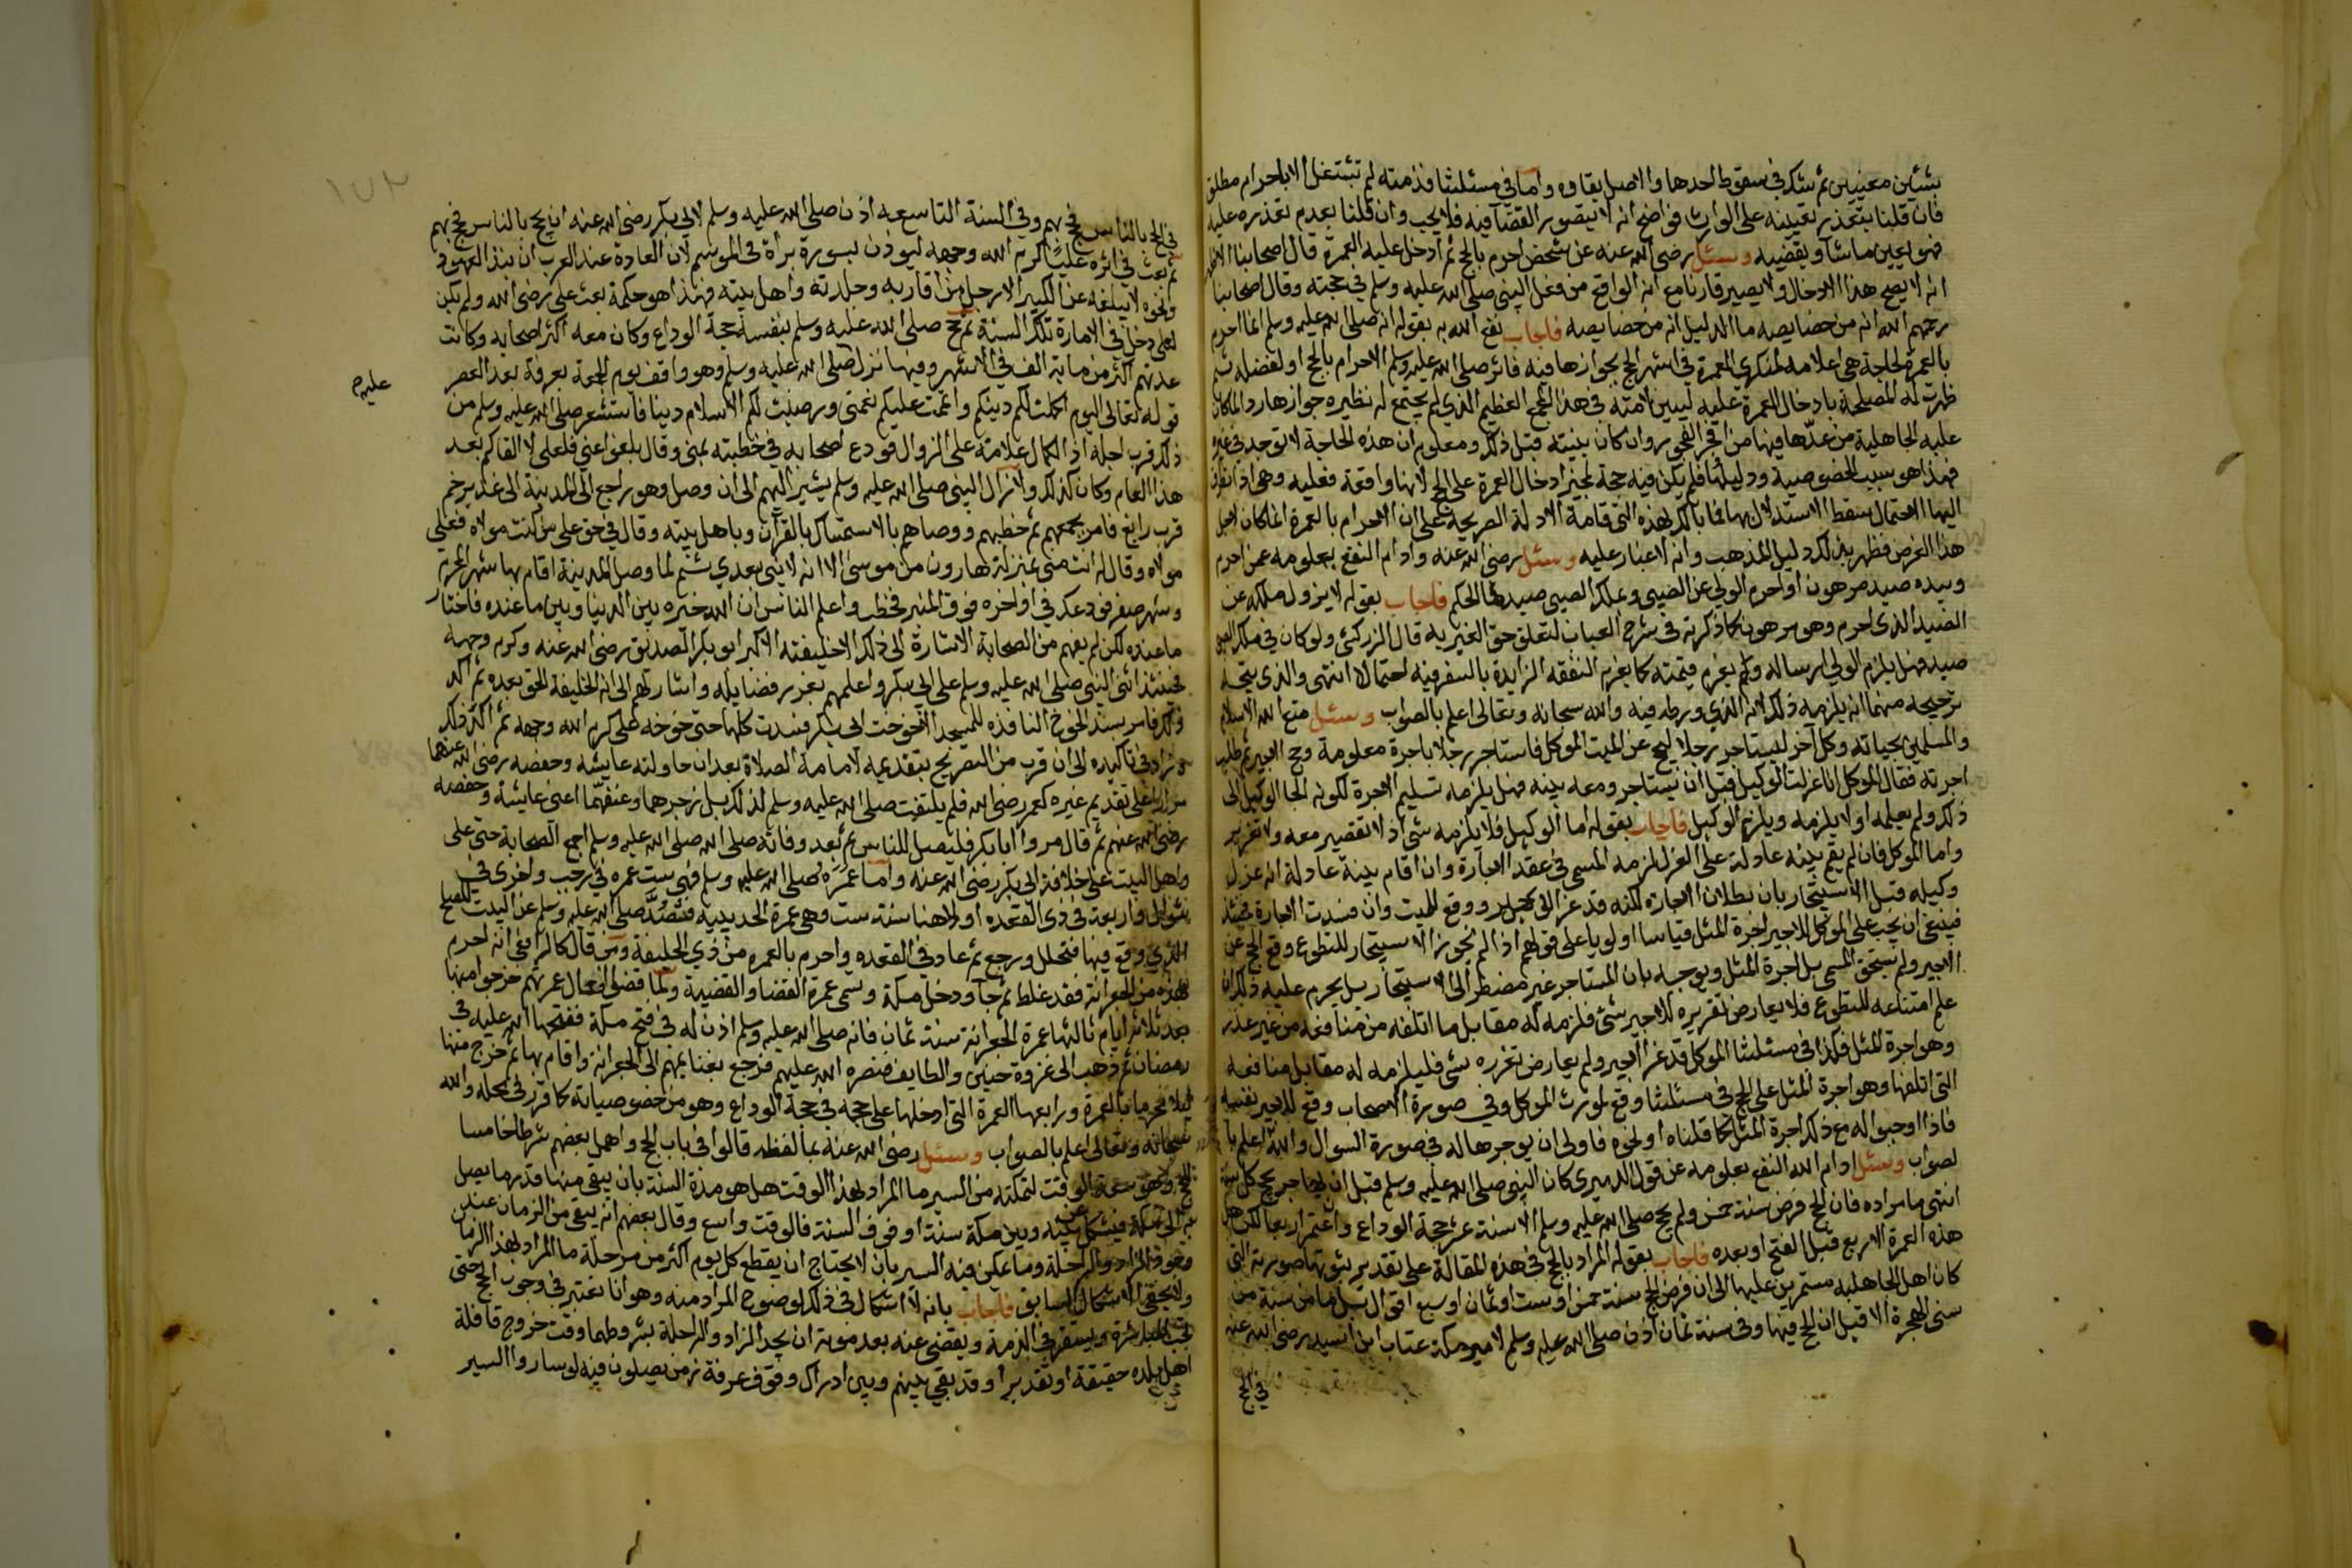 بشيئين معينين ثم شك في سقوط احدها والاصل بقاوه واما في مسئلتنا فذمته لم تشتغل الا باحرام مطلق
فان قلنا بتعذر تعيينه على الوارث فواضح انه لا يتصور القضا فيه فلا يجب وان قلنا بعدم تعذره عليه
فهو يعين ما شا ويقضيه وسئل رضي الله عنه عن شخص احرم بالحج ثم ادخل عليه العمرة قال اصحابنا
انه لا يصح هذا الادخال ولا يصير قارنا مع انه الواقع من فعل النبي صلى الله عليه وسلم في حجته وقال اصحابنا
رحمهم الله انه من خصايصه ما الدليل انه من خصايصه فاجاب نفع الله به بقوله انه صلى الله عليه وسلم انما احرم
بالعمرة لحاجة هي اعلامه لمنكري العمرة في اشهر الحج بجوازها فيه فاثر صلى الله عليه وسلم الاحرام بالحج او لفضله ثم
ظهرت له المصلحة بادخال العمرة عليه ليبين لامته في هذا الجمع العظيم الذي لم يجتمع له نظيره جوازها ردا لما كان
عليه الجاهلية من عدها فيها من افجر الفجور وان كان بينته قبل ذلك ومعلوم ان هذه الحاجة لا توجد في غيره
فهذا هو سبب الخصوصية ودليلها فلم يكن فيه حجة لمجيز ادخال العمرة على الحج لانها واقعة فعليه وهي اذا تطرق
اليها الاحتمال سقط الاستدلال بها فما بالك بهذه التي قامت الادلة الصريحة على ان الاحرام بالعمرة انما كان لاجل
هذا الغرض فظهر بذلك دليل المذهب وانه لا غبار عليه وسئل رضي الله عنه وادام النفع بعلومه عمن احرم
وبيده صيد مرهون او احرم الولي عن الصبي وملك الصبي صيد ما الحكم فاجاب بقوله لا يزول ملكه عن
الصيد الذي احرم وهو مرهون كما ذكرته في شرح العباب لتعلق حق الغير به قال الزركشي ولو كان في ملك الصبي
صيد فهل يلزم الولي ارساله ويغرم قيمته كما يغرم النفقة الزايدة بالسفر فيه احتمالان انتهى والذي يتجه
ترجيحه منهما انه يلزمه ذلك لانه الذي ورطه فيه والله سبحانه وتعالى اعلم بالصواب وسئل متع الله الاسلام
والمسلمين بحياته وكل آخر ليستاجر رجلا ليحج عن الميت الموكل فاستاجر رجلا باجرة معلومة وحج الاجير ثم طلب
اجرته فقال الموكل انا عزلت الوكيل قبل ان يستاجر ومعه بينه فهل يلزمه تسليم الاجرة لكونه الجا الوكيل الى
ذلك ولم يعلمه او لا يلزمه ويلزم الوكيل فاجاب بقوله اما الوكيل فلا يلزمه شي اذ لا تقصير معه ولا تغرير
واما الموكل فان لم يقم بينه عادلة على العزل لزمه المسمى في عقد الاجارة وان اقام بينة عادلة انه عزل
وكيله قبل الاستيجار بان بطلان الاجاره لكنه قد غر الاجير ووقع للميت وان فسدت الاجارة فحينئذ
فينبغي ان يجب على الموكل للاجير اجرة المثل قياسا اولويا على قولهم اذا لم نجوز الاستيجار للتطوع وقع الحج عن
الاجير ولم يستحق المسمى بل اجرة المثل ويوجه بان المستاجر غير مضطر الى الاستيجار بل يحرم عليه ذلك ان
علم امتناعه للتطوع فلا يعارض تقريره للاجير شي فلزمه له مقابل ما اتلفه من منافعه من غير عذر
وهو اجرة المثل فكذا في مسئلتنا الموكل قد غر الاجير ولم يعارض تغرره شي فليلزمه له مقابل منافعه
التي اتلفها وهو اجرة المثل على الحج في مسئلتنا وقع لمورث الموكل وفي صورة الاصحاب وقع للاجير نفسه
فاذا اوجبوا له مع ذلك اجرة المثل كما قلناه او نحوه فاولى ان يوجرها له في صورة السوال والله اعلم با
لصواب وسئل ادام الله النفع بعلومه عن قول الدميري كان النبي صلى الله عليه وسلم قبل ان يهاجر يحج كل سنة
انتهى ما مراده فان الحج فرض سنة خمس ولم يحج صلى الله عليه وسلم الا سنة عشر حجة الوداع واعتمر اربعا لكن هل
هذه العمرة الاربع قبل الفتح او بعده فاجاب بقوله المراد بالحج في هذه المقالة على تقدير ثبوتها صورته التي
كان اهل الجاهليه مستمرين عليها الى ان فرض الحج سنة خمس او ست او ثمان او سبع اقوال بل ما من سنة من
سني الهجرة الا قيل ان الحج فيها وفي سنة ثمان اذن صلى الله عليه وسلم لامير مكة عتاب ابن اسيد رضي الله عنه
في الحج
١٧٢
في الحج بالناس فحج بهم وفي السنة التاسعه اذن صلى الله عليه وسلم لابي بكر رضي الله عنه ان يحج بالناس فحج بهم
ثم بعث في اثره عليا كرم الله وجهه ليوذن بسورة براة في الموسم لان العادة عند العرب ان نبذ العهود
ونحوه لا يبلغه عن الكبير الا رجل من اقاربه وجلدته واهل بيته فهذا هو حكمة بعث علي رضي الله ولم يكن
لعلي دخل في الامارة تلك السنة ثم حج صلى الله عليه وسلم بنفسه حجة الوداع وكان معه اكثر اصحابه وكانت
عدتهم اكثر من ماية الف في الاشهر وفيها نزل صلى الله عليه وسلم وهو واقف يوم الجمعة بعرفة بعد العصر
عليه م
قوله تعالى اليوم اكملت لكم دينكم واتممت عليكم نعمتي ورضيت لكم الاسلام دينا فاستشعر صلى الله عليه وسلم من
ذلك قرب اجله اذ الكمال علامة على الزوال فودع اصحابه في خطبته بمنى وقال بلغوا عني فلعلي لا القاكم بعد
هذا العام وكان كذلك ولا زال النبي صلى الله عليه وسلم يشير اليهم الى ان وصل وهو راجع الى المدينة الى غدير خم
قرب رابغ فامر بجمعهم ثم خطبهم ووصاهم بالاستمساك بالقرآن وباهل بيته وقال في حق علي من كنت مولاه فعلي
مولاه وقال له انت مني بمنزلة هارون من موسى الا انه لا نبي بعدي ثم لما وصل المدينة اقام بها شهر المحرم
وشهر صفر فوعك في اواخره فوق المنبر فخطب واعلم الناس ان الله خيره بين الدنيا وبين ما عنده فاختار
ما عنده لكن لم يفهم من الصحابة الاشارة الى ذلك الا خليفته الاكبر ابو بكر الصديق رضي الله عنه وكرم وجهه
فحينئذ اثنى النبي صلى الله عليه وسلم على ابي بكر واعلمهم بغرر فضايله واشار لهم الى انه الخليفة الحق بعده ثم اكد
ذلك فامر بسد الخوخ النافذه للمسجد الا خوخت ابي بكر فسدت كلها حتى خوخه علي كرم الله وجهه ثم اكد ذلك
وزاد في تاكيده الى ان قرب من التصريح بتقديمه لامامة الصلاة بعد ان حاولته عايشه وحفصه رضي الله عنهما
مرارا على تقديم غيره كعمر رضي الله فلم يلتفت صلى الله عليه وسلم لذلك بل زجرهما وعنفهما اعني عايشة وحفصه
رضي الله عنهم ثم قال مروا ابا بكر فليصل للناس ثم بعد وفاته صلى الله صلى الله عليه وسلم اجمع الصحابة حتى علي
واهل البيت على خلافة ابي بكر رضي الله عنه واما عمره صلى الله عليه وسلم فهي ست عمره في رجب واخرى في
شوال واربعة في ذي القعده اولاهنا سنة ست وهي عمرة الحديبيه فصد صلى الله عليه وسلم عن البيت للصلح
الذي وقع فيها فتحلل ورجع ثم عاد في القعده واحرم بالعمره من ذي الحليفة ومن قال كالرافعي انه احرم
بهذه من الجعرانة فقد غلط ثم جا ودخل مكة وتسمى عمرة القضا والقضية ولما قضى افعال عمرتهم خرجوا منها
بعد ثلاثة ايام ثالثها عمرة الجعرانة سنة ثمان فانه صلى الله عليه وسلم اذن له في فتح مكة ففتحها الله عليه في
رمضان ثم ذهب الى غزوة حنين والطايف فنصره الله عليهم فرجع بغنايمهم الى الجعرانة واقام بها ثم خرج منها
ليلا محرما بالعمرة ورابعها العمرة التي ادخلها على حجه في حجة الوداع وهو من خصوصياته كما قرر في محله والله
سبحانه وتعالى اعلم بالصواب وسئل رضي الله عنه بما لفظه قالوا في باب الحج واهمل بعضهم شرطا خامسا
للحج وهو سعة الوقت لتمكنه من السير ما المراد بهذا الوقت هل هو مدة السنة بان يبقى منها قدر ما يصل
فيه الى مكة فيشكل بمن بينه وبين مكة سنة او فوق السنة فالوقت واسع وقال بعضهم انه يبقى من الزمان عند
وجود الزاد والراحلة وما يمكن فيه السير بان لا يحتاج ان يقطع كل يوم اكثر من مرحلة ما المراد بهذا الزمان
ولا يخفى الاشكال السابق فاجاب بانه لا اشكال في ذلك لوضوح المراد منه وهو انا نعتبر في وجوب الحج حتى
تجب المباشرة ويستقر في الذمة ويقضى عنه بعد موته ان يجد الزاد والراحلة بشروطهما وقت خروج قافلة
اهل بلده حقيقة او تقديرا وقد بقي بينهم وبين ادراك وقوف عرفة زمن يصلون فيه لو ساروا السير